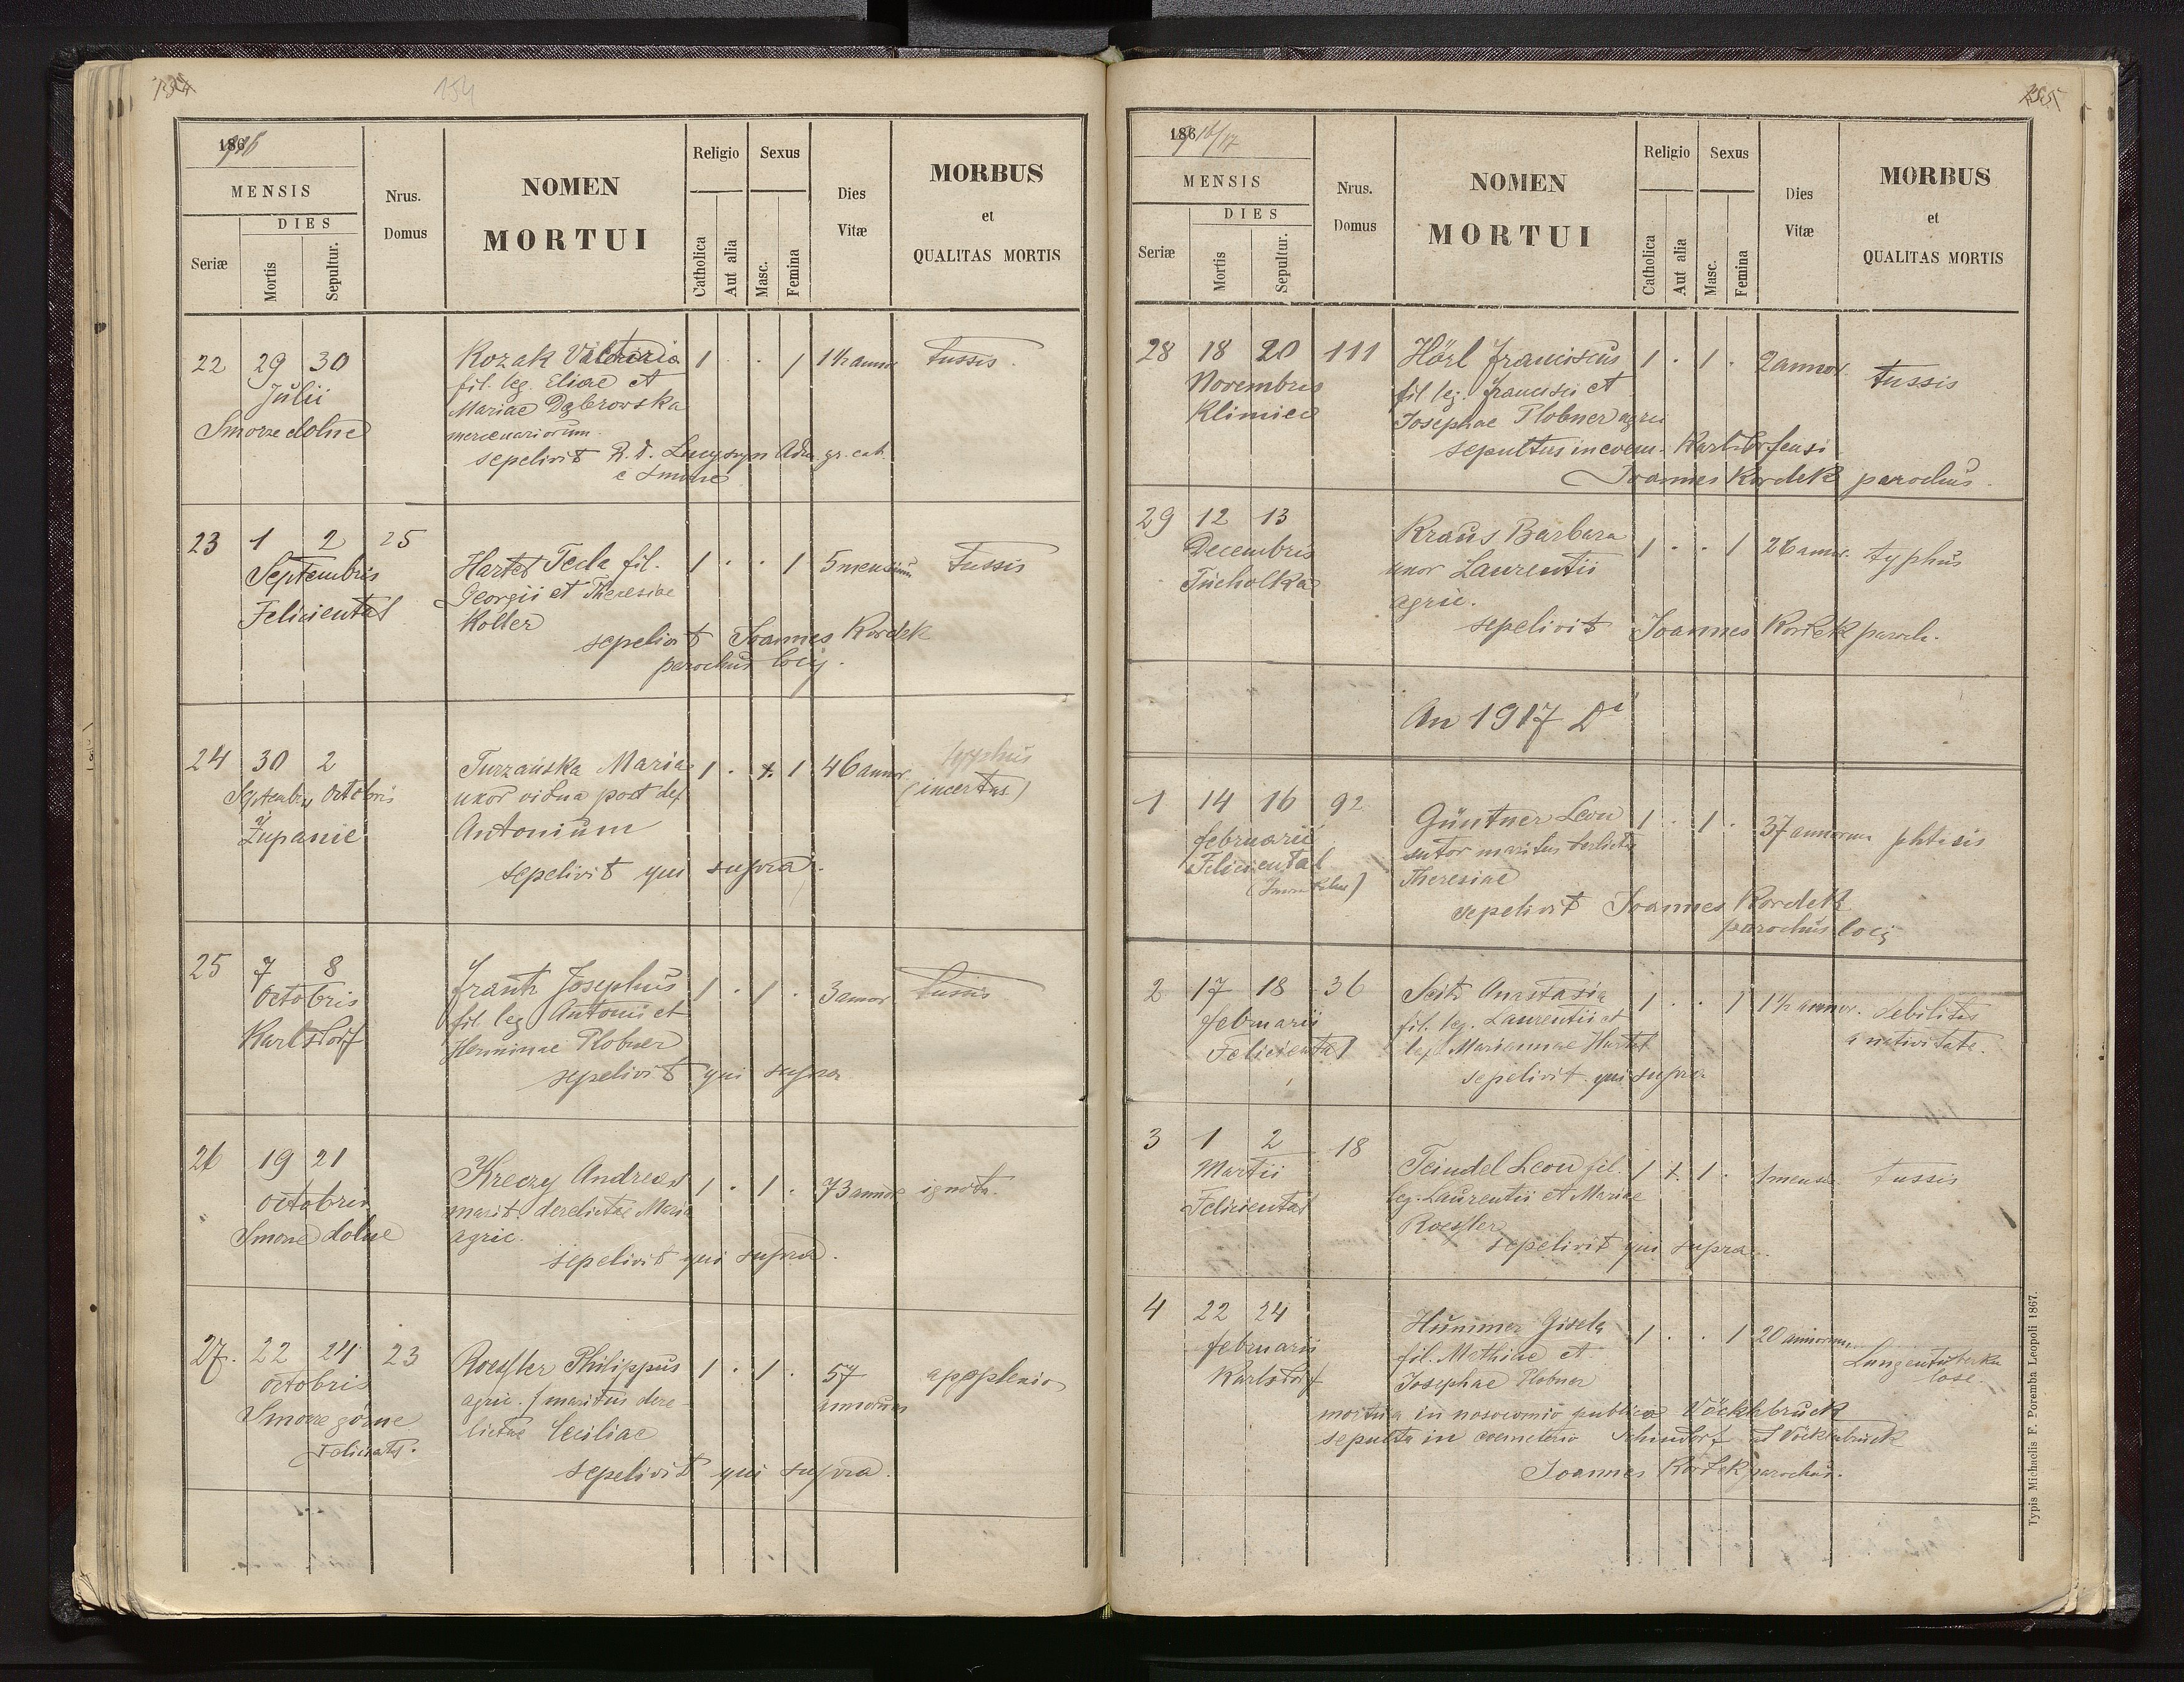 154
1916
MENSIS
DIES
Seriæ
Mortis
Sepultur.
Nrus.
Domus
NOMEN
MORTUI
Religio
Catholica
Aut alia
Sexus
Masc.
Femina
Dies
Vitæ
MORBUS
et
QUALITAS MORTIS
22 29 30 Kozak 1 . . 1 1½ annor tussis.
Julii fil. leg. Eliae et
Smorze dolne Mariae Dąbrowska
mercenariorum.
sepelivit R. d. gr. cat.
e Smorze
23 1 2 25 Hartel Tecla fil. 1 . . 1 5 mensium tussis
Septembris Georgii et Theresiae
Felicienthal Koller
sepelivit Joannes Kordek
parochus locij.
24 30 2 Turzańska Maria 1 . 1 46 annor. typhus
Septembris Octobris uxor vidua post def (incertus)
Żupanie Antonium
sepelivit qui supra.
25 7 8 Frank Josephus 1 . 1 . 3 annor tussis
Octobris fil. leg Antonii et
Karlsdorf Herminae Plobner
sepelivit qui supra
26 19 21 Kreczy Andreas 1 . 1 . 73 annor ignota.
Octobris marit. derelictae Maria
Smorze dolne agric.
sepelivit qui supra.
27. 22 24 23 Roessler Philippus 1 . 1 . 57 apoplexia
Octobris agric. / maritus dere- annorum
Smorze górne lictae Ceciliae
Feliciental.
sepelivit qui supra.
1916/17
MENSIS
DIES
Seriæ
Mortis
Sepultur.
Nrus.
Domus
NOMEN
MORTUI
Religio
Catholica
Aut alia
Sexus
Masc.
Femina
Dies
Vitæ
MORBUS
et
QUALITAS MORTIS
28 18 20 111 Hörl Franciscus 1 . 1 . 2 annor. tussis
Novembris fil leg. Francisci et
Klimiec Josephae Plobner agric
sepultus in coem. Karlsdorfensi
Joannes Kordek parochus.
29 12 13 Kraus Barbara 1 . . 1 26 annor. typhus
Decembris uxor Laurentii
Tucholka agric.
sepelivit Joannes Kordek paroch.
An 1917 Di
1 14 16 92 Güntner Leon 1 . 1 . 37 annorum phtisis
Februarii sutor maritus derlictae
Feliciental Theresiae
sepelivit Joannes Kordek
parochus locij
2 17 18 36 Seitz Anastasia 1 . . 1 1½ annor. debilitas
Februarii fil. leg. Laurentii et a nativitate.
Feliciental leg Mariannae Hartel
sepelivit qui supra
3 1 2 18 Teindel Leon fil. 1 . 1 . 1 mens tussis
Martii leg. Laurentii et Mariae
Feliciental Roessler
sepelivit qui supra.
4 22 24 Hummer Gisela 1 . . 1 20 annorum Lungentuberku
Februarii fil. Mathiae et lose.
Karlsdorf Josephae Plobner
mortua in nosocomio publico Vöcklabruck
sepulta in coemeterio Schöndorf ad Vöcklabruck
Joannes Kordek parochus.
Typis Michaelis F. Poremba Leopoli 1867.